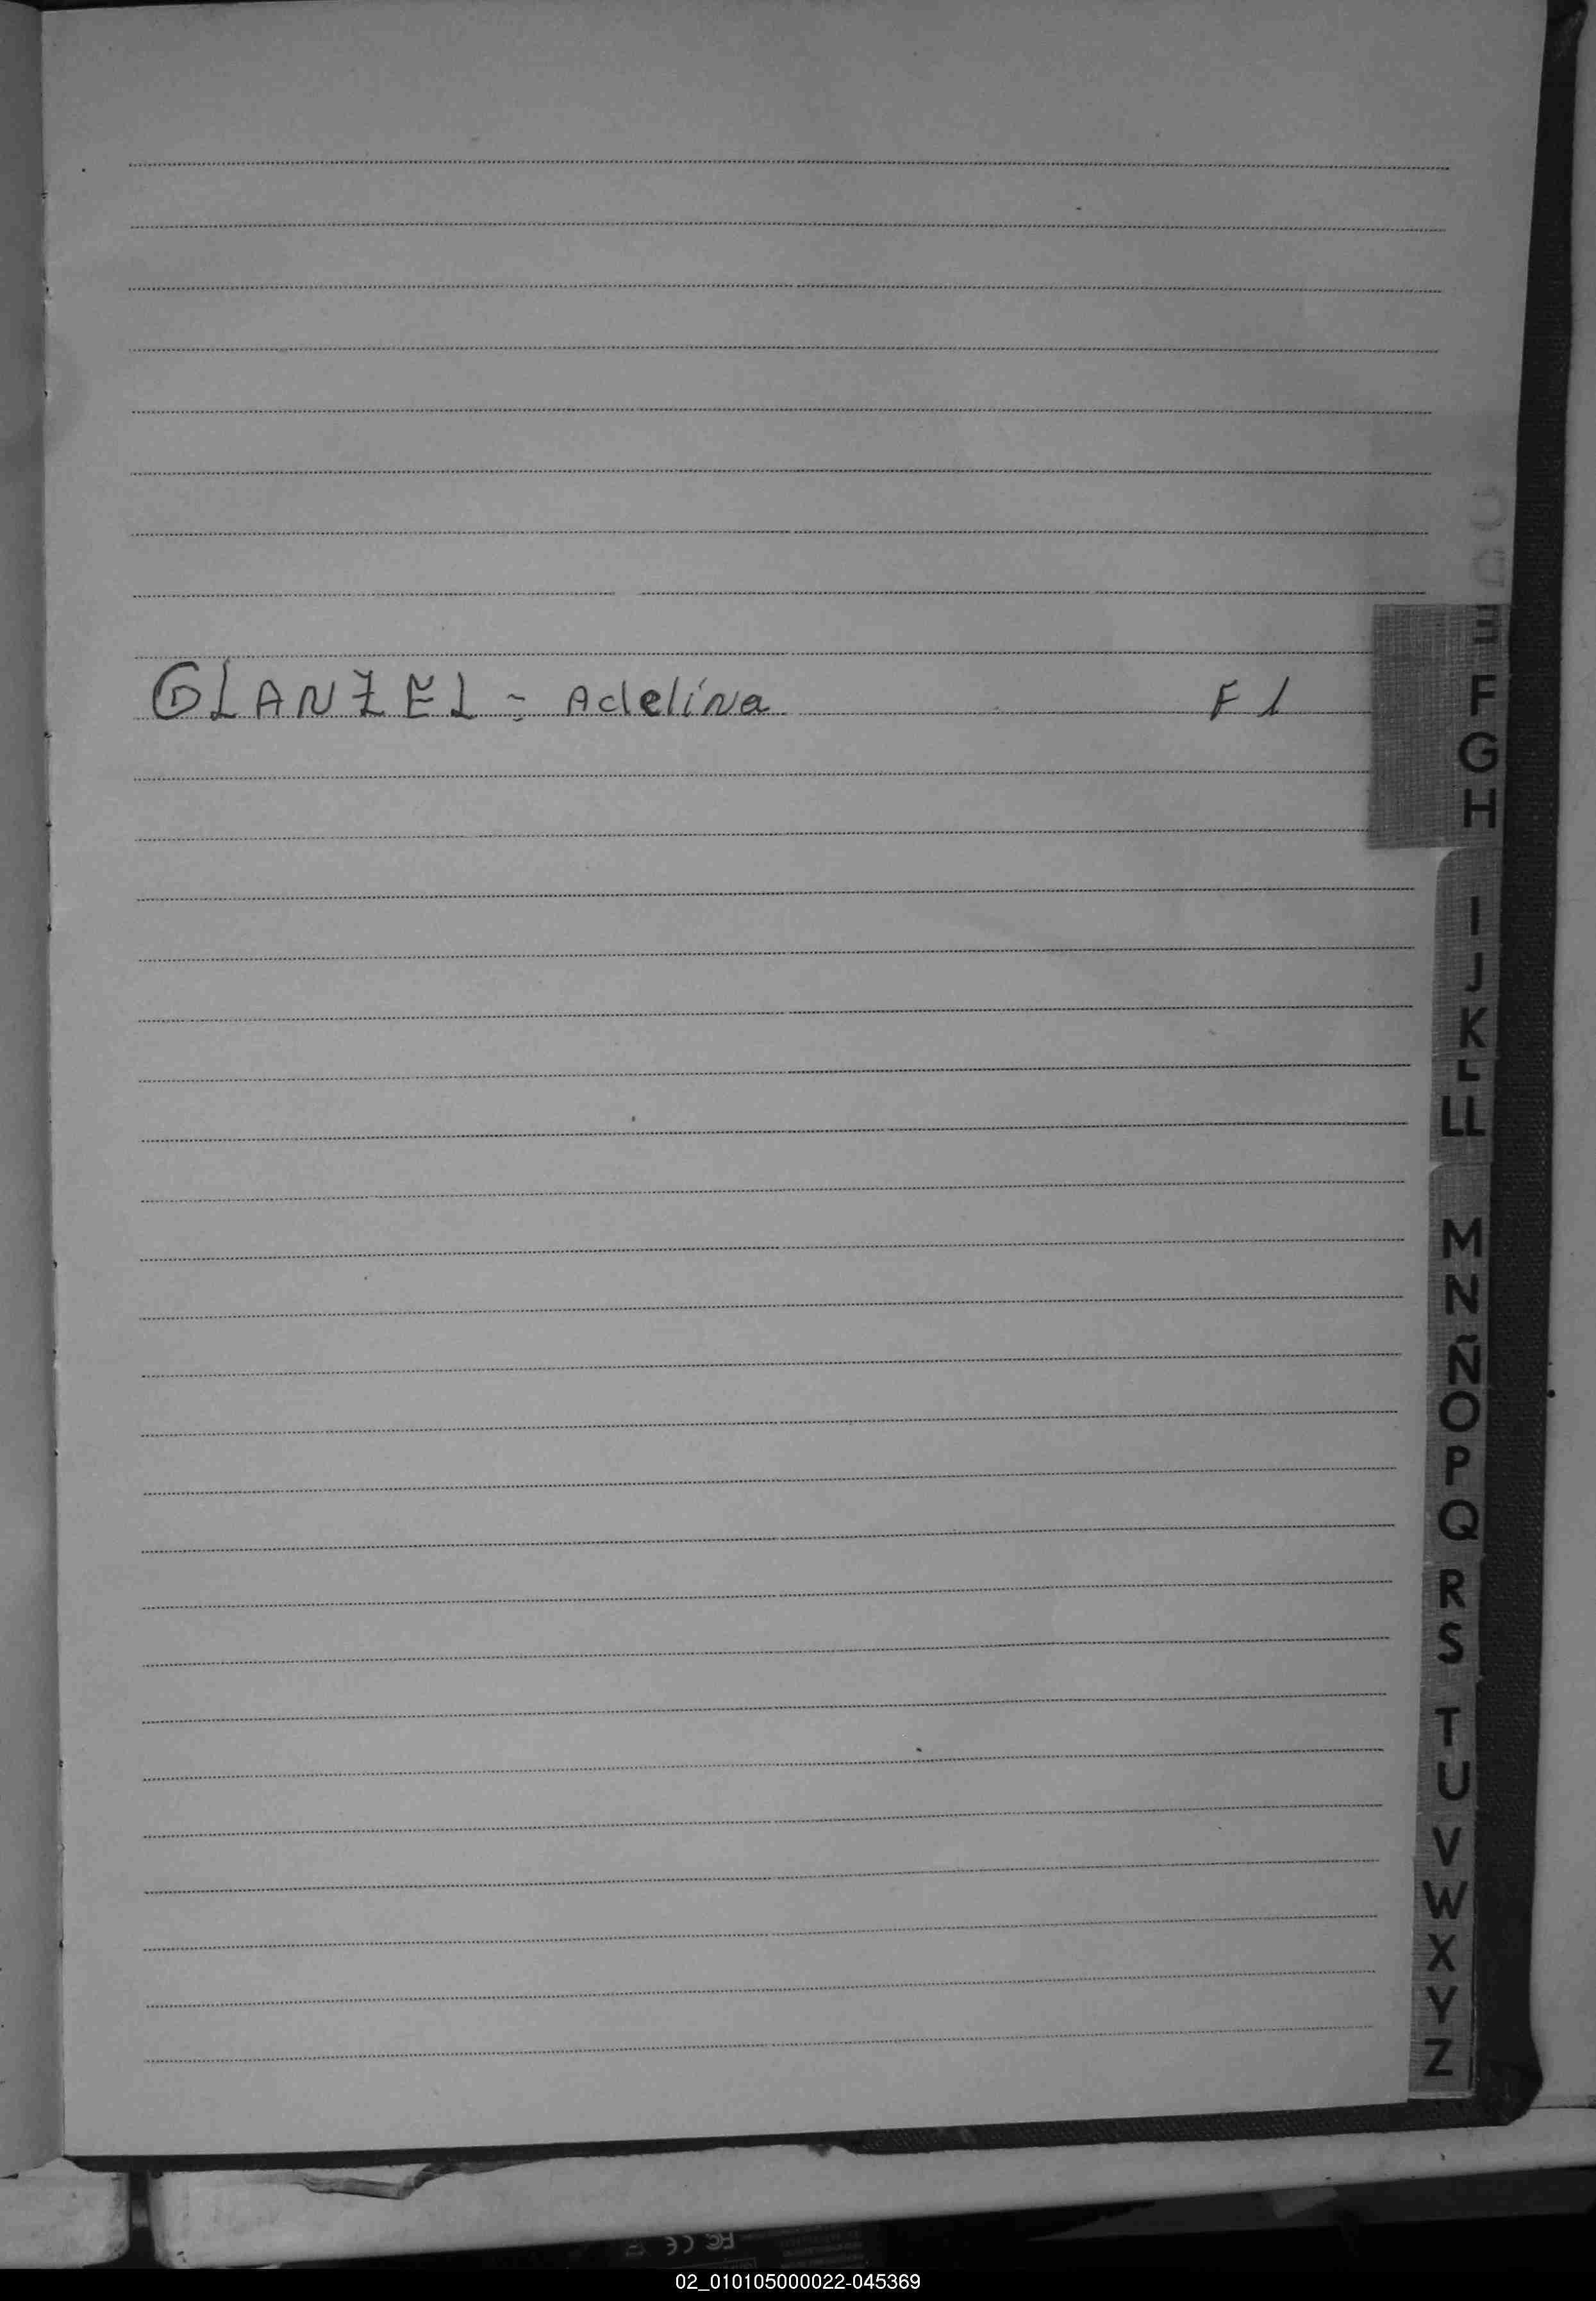 GLANZEL = Adelina F 1
E
F
G
H
I
J
K
L
LL
M
N
Ñ
O
P
Q
R
S
T
U
V
W
X
Y
Z
FC CE
02_010105000022-045369